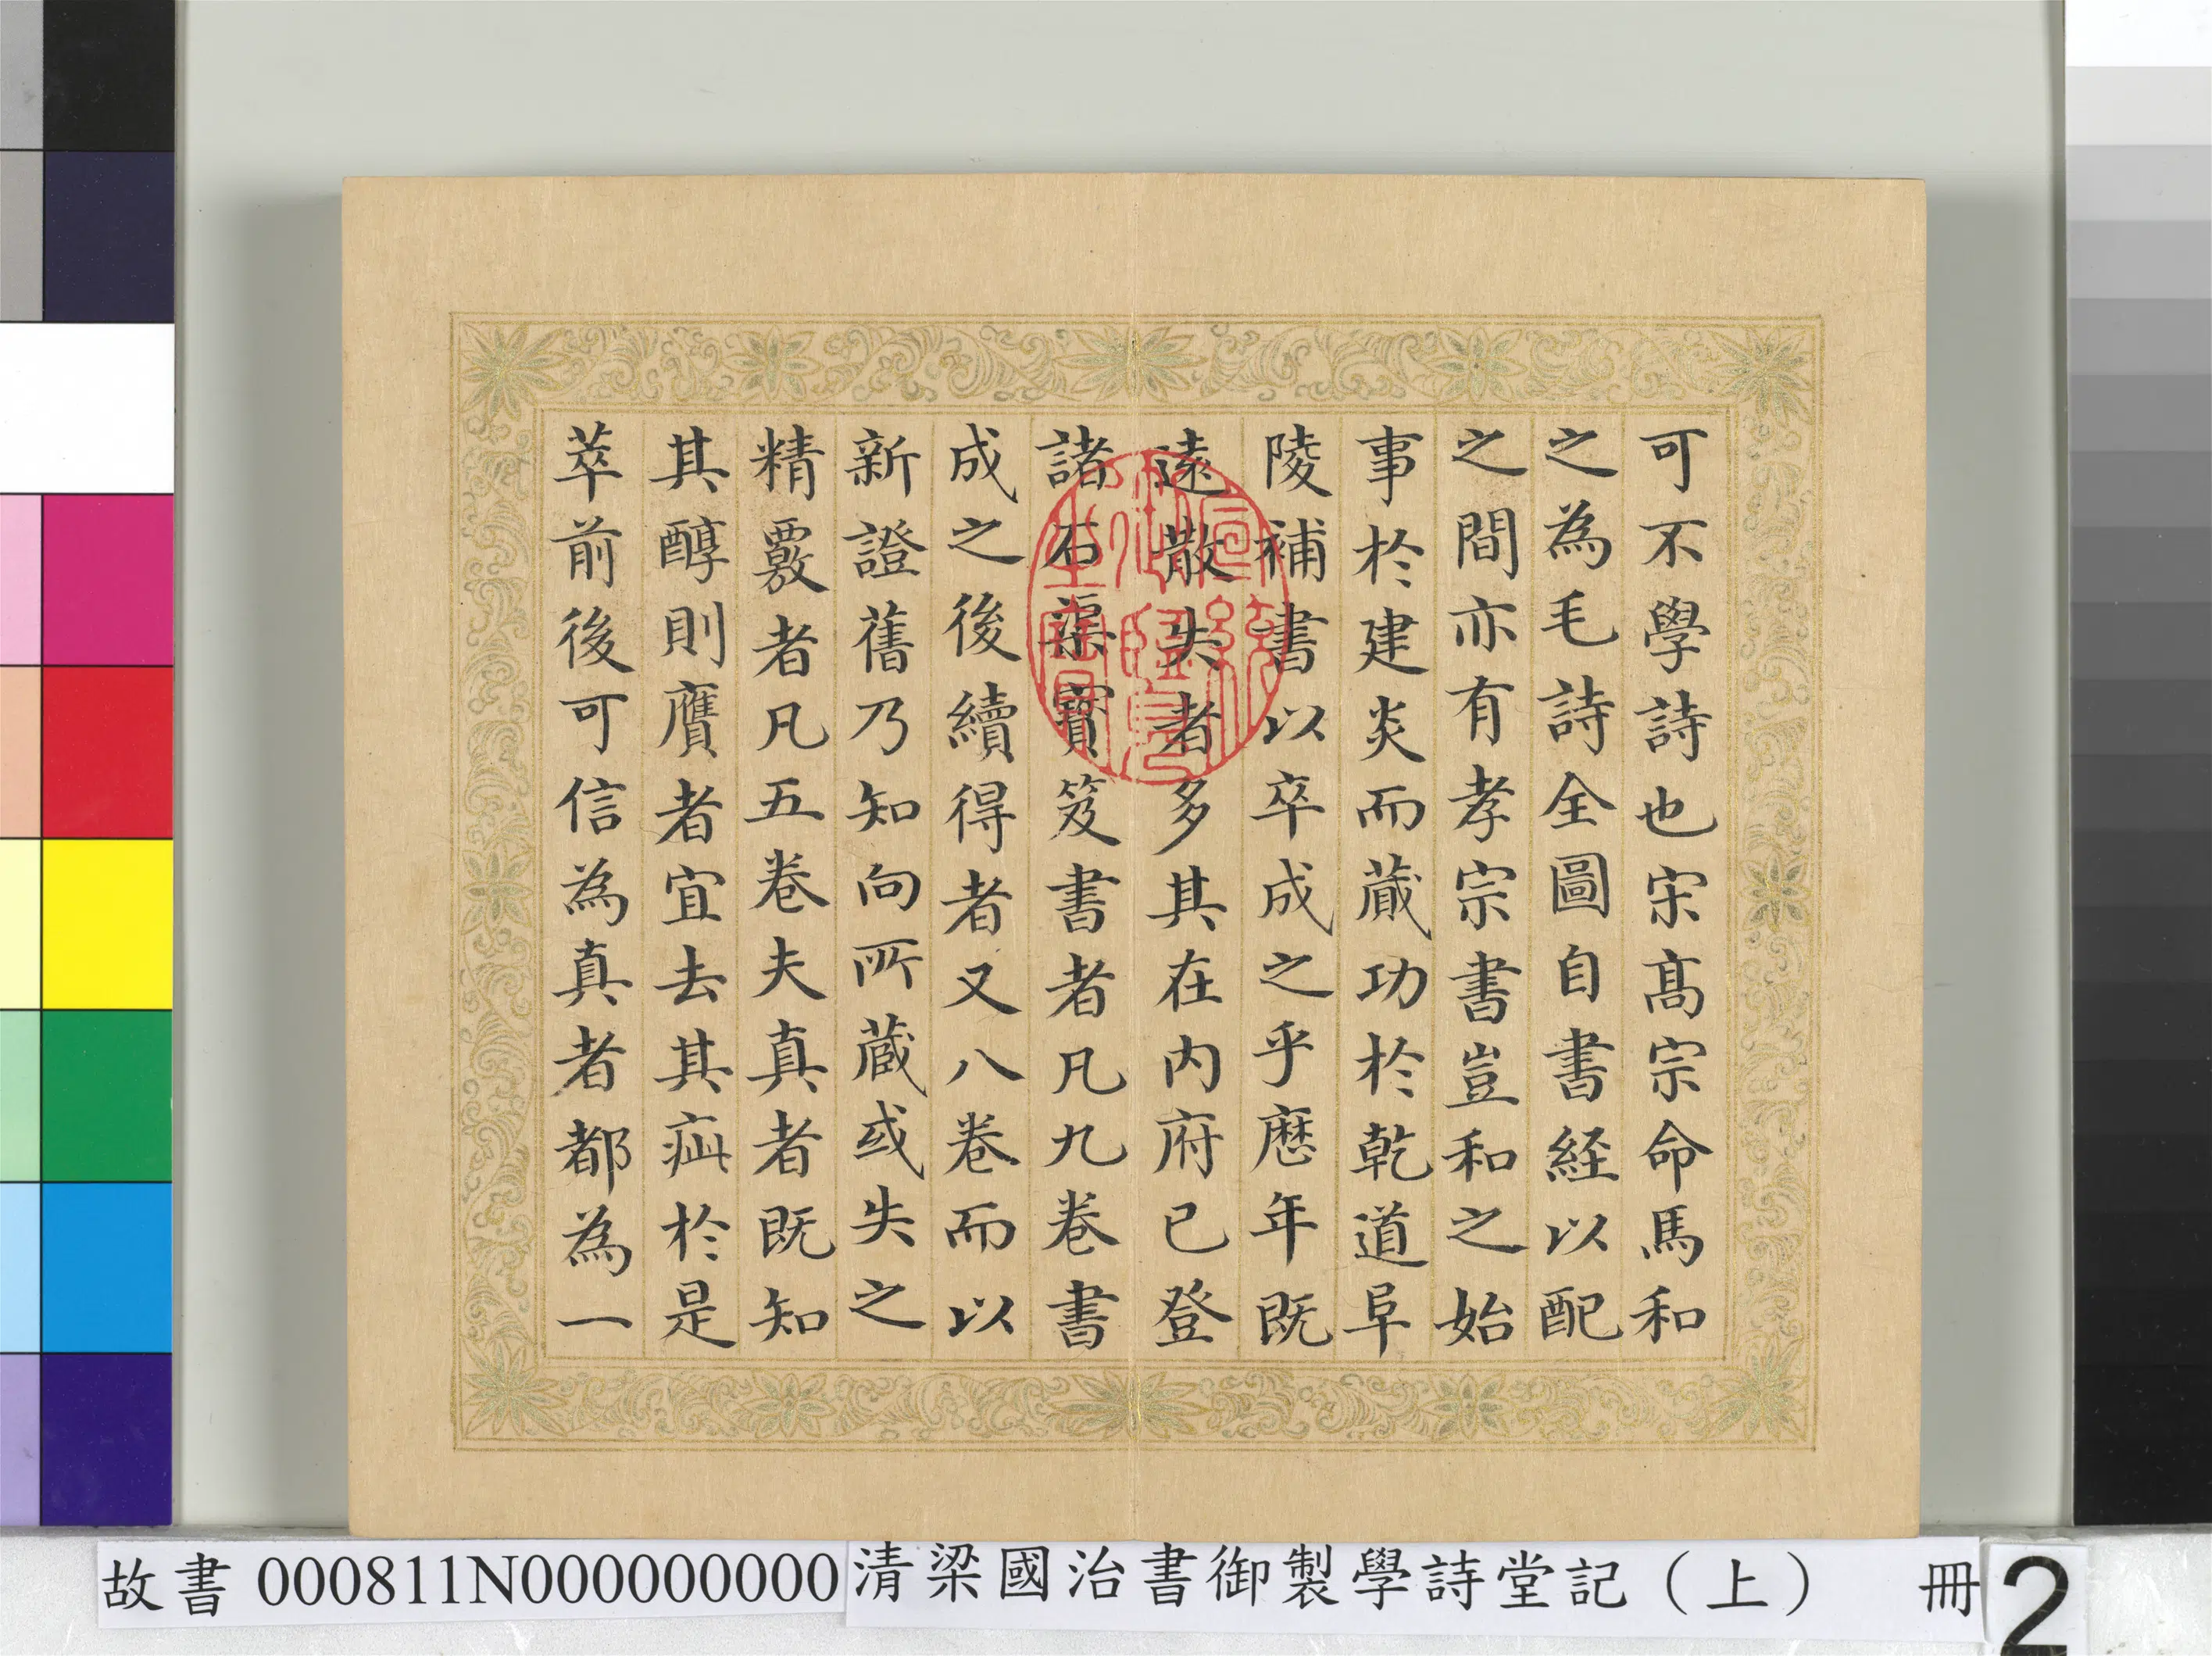 可不學詩也宋髙宗命馬和
之為毛詩全圖自書経以配
之間亦有孝宗書豈和之始
事於建炎而蕆功於乾道阜
陵補書以卒成之乎歴年既
逺散失者多其在内府已登
諸石渠寶笈書者凡九卷書
成之後續得者又八卷而以
新證舊乃知向所蔵或失之
精覈者凡五卷夫真者既知
其醇則贗者宜去其疵於是
萃前後可信為真者都為一
乾隆御覽之寶
故書 000811N000000000 清梁國治書御製學詩堂記（上） 冊 2